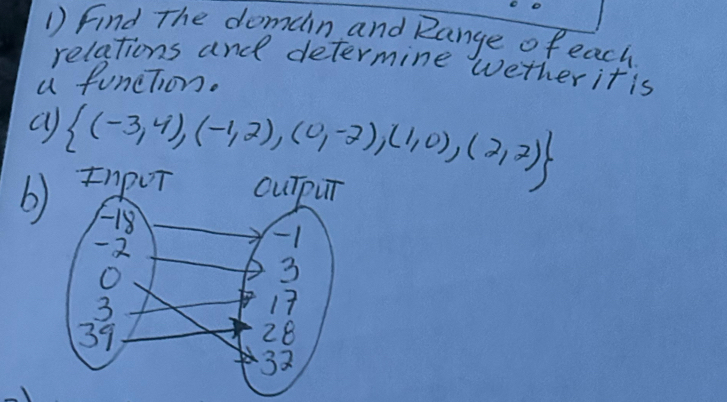 1) Find The domain and Range of each
relations and determine wether it is
a function.
a) {(-3,4), (-1,2), (0,-2), (1,0), (2,2)}
b) INPUT OUTPUT
-18 -1
-2 3
0 17
3 28
39 32